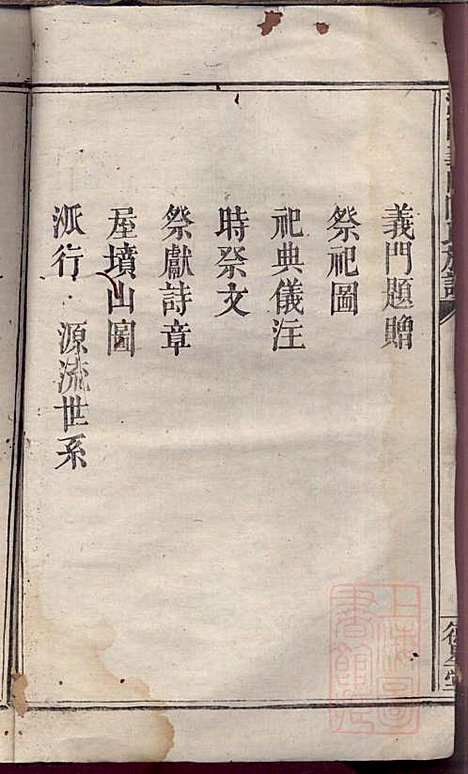 義門題贈
祭祀圖
祀典儀注
時祭文
祭獻詩章
屋墳山圖
派行 源流世系
上海圖書館藏